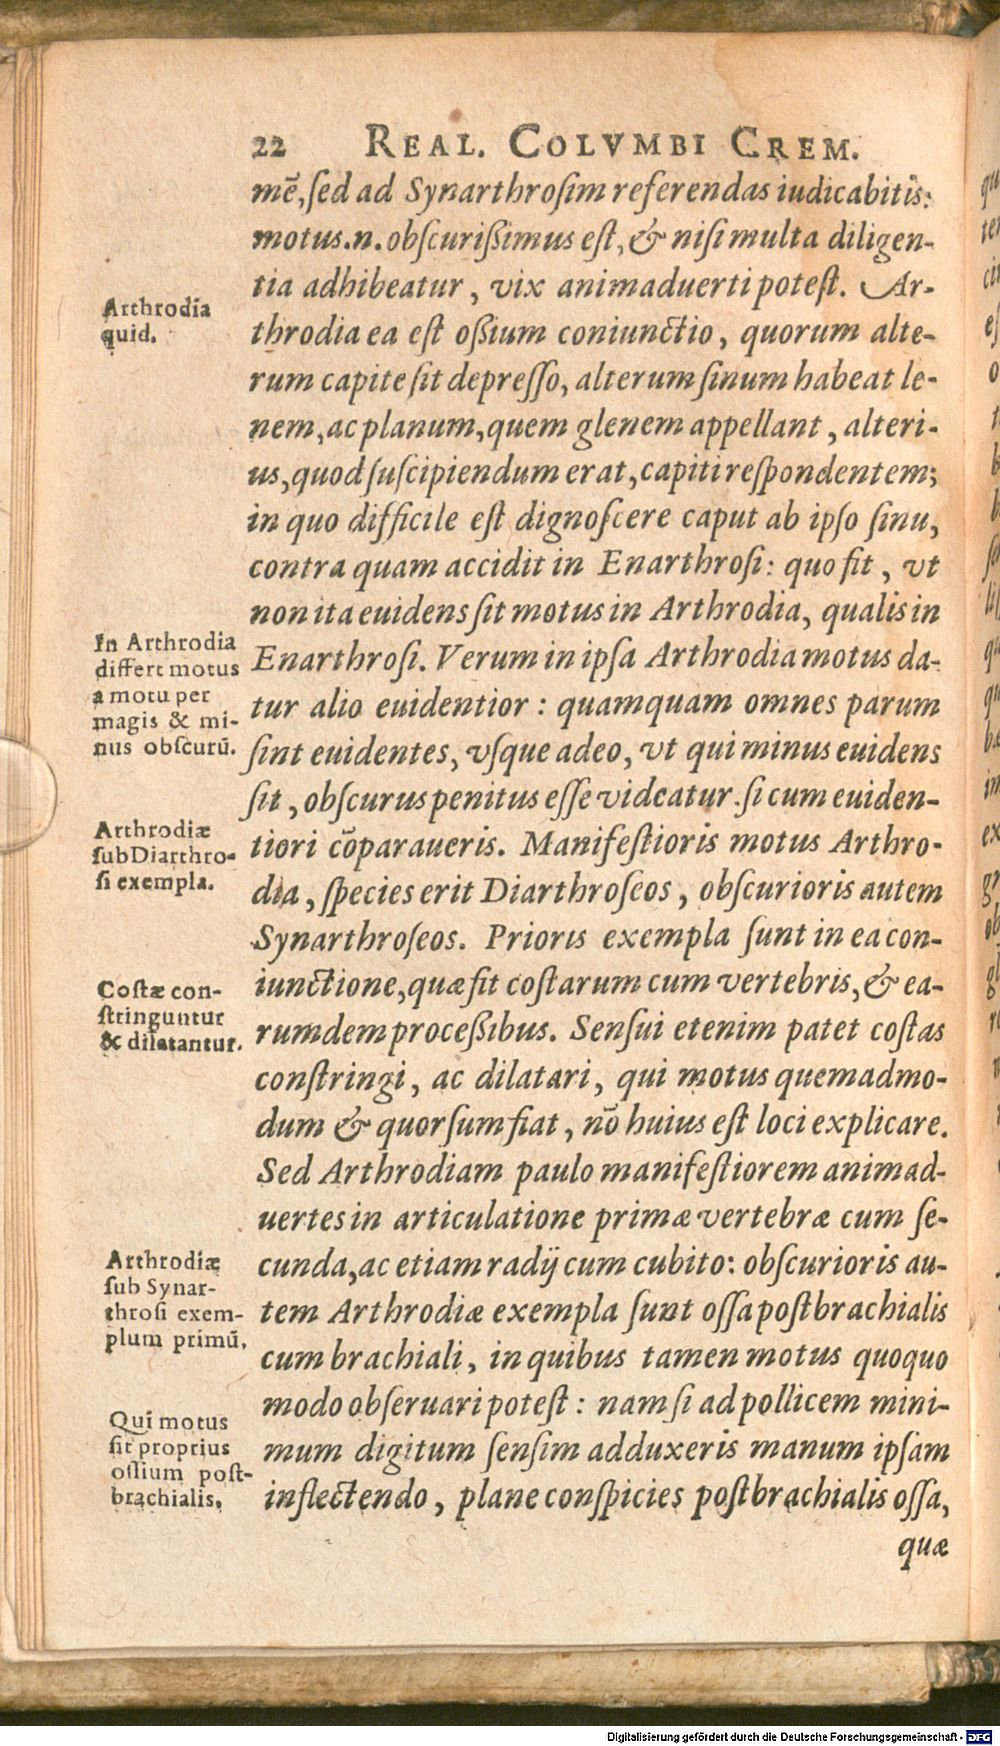 22 REAL. COLVMBI CREM.
mē, ſed ad Synarthroſim referendas iudicabitis:
motus.n. obſcuriſſimus eſt, & niſi multa diligen-
tia adhibeatur, vix animaduerti poteſt. Ar-
throdia ea eſt oſſium coniunctio, quorum alte-
rum capite ſit depreſſo, alterum ſinum habeat le-
nem, ac planum, quem glenem appellant, alteri-
us, quod ſuſcipiendum erat, capiti reſpondentem;
in quo difficile eſt dignoſcere caput ab ipſo ſinu,
contra quam accidit in Enarthroſi: quo fit, vt
non ita euidens ſit motus in Arthrodia, qualis in
Enarthroſi. Verum in ipſa Arthrodia motus da-
tur alio euidentior: quamquam omnes parum
ſint euidentes, vſque adeo, vt qui minus euidens
ſit, obſcurus penitus eſſe videatur. ſi cum euiden-
tiori cōparaueris. Manifeſtioris motus Arthro-
dia, ſpecies erit Diarthroſeos, obſcurioris autem
Synarthroſeos. Prioris exempla ſunt in ea con-
iunctione, quæ fit coſtarum cum vertebris, & ea-
rumdem proceſſibus. Senſui etenim patet coſtas
conſtringi, ac dilatari, qui motus quemadmo-
dum & quorſum fiat, nō huius eſt loci explicare.
Sed Arthrodiam paulo manifeſtiorem animad-
uertes in articulatione primæ vertebræ cum ſe-
cunda, ac etiam radij cum cubito: obſcurioris au-
tem Arthrodiæ exempla ſunt oſſa poſtbrachialis
cum brachiali, in quibus tamen motus quoquo
modo obſeruari poteſt: nam ſi ad pollicem mini-
mum digitum ſenſim adduxeris manum ipſam
inflectendo, plane conſpicies poſtbrachialis oſſa,
quæ
Arthrodia
quid.
In Arthrodia
differt motus
a motu per
magis & mi-
nus obſcurū.
Arthrodiæ
ſub Diarthro-
ſi exempla.
Coſtæ con-
ſtringuntur
& dilatantur.
Arthrodiæ
ſub Synar-
throſi exem-
plum primū.
Qui motus
ſit proprius
oſſium poſt-
brachialis.
Digitalisierung gefördert durch die Deutsche Forschungsgemeinschaft - DFG